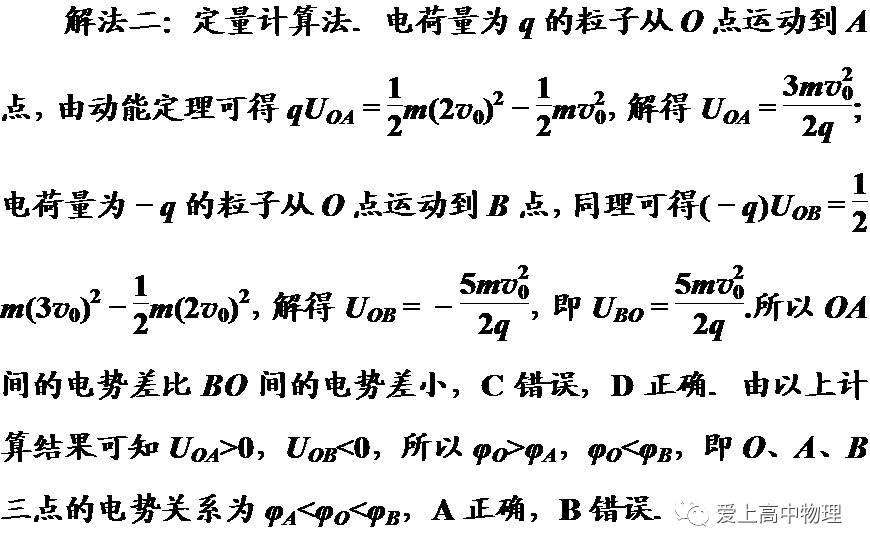 解法二：定量计算法. 电荷量为 q 的粒子从 O 点运动到 A
点，由动能定理可得 qU_{OA} = \frac{1}{2}m(2v_0)^2 - \frac{1}{2}mv_0^2，解得 U_{OA} = \frac{3mv_0^2}{2q}；
电荷量为 -q 的粒子从 O 点运动到 B 点，同理可得(-q)U_{OB} = \frac{1}{2}
m(3v_0)^2 - \frac{1}{2}m(2v_0)^2，解得 U_{OB} = -\frac{5mv_0^2}{2q}，即 U_{BO} = \frac{5mv_0^2}{2q}.所以 OA
间的电势差比 BO 间的电势差小，C 错误，D 正确. 由以上计
算结果可知 U_{OA}>0，U_{OB}<0，所以 φ_O>φ_A，φ_O<φ_B，即 O、A、B
三点的电势关系为 φ_A<φ_O<φ_B，A 正确，B 错误.
爱上高中物理